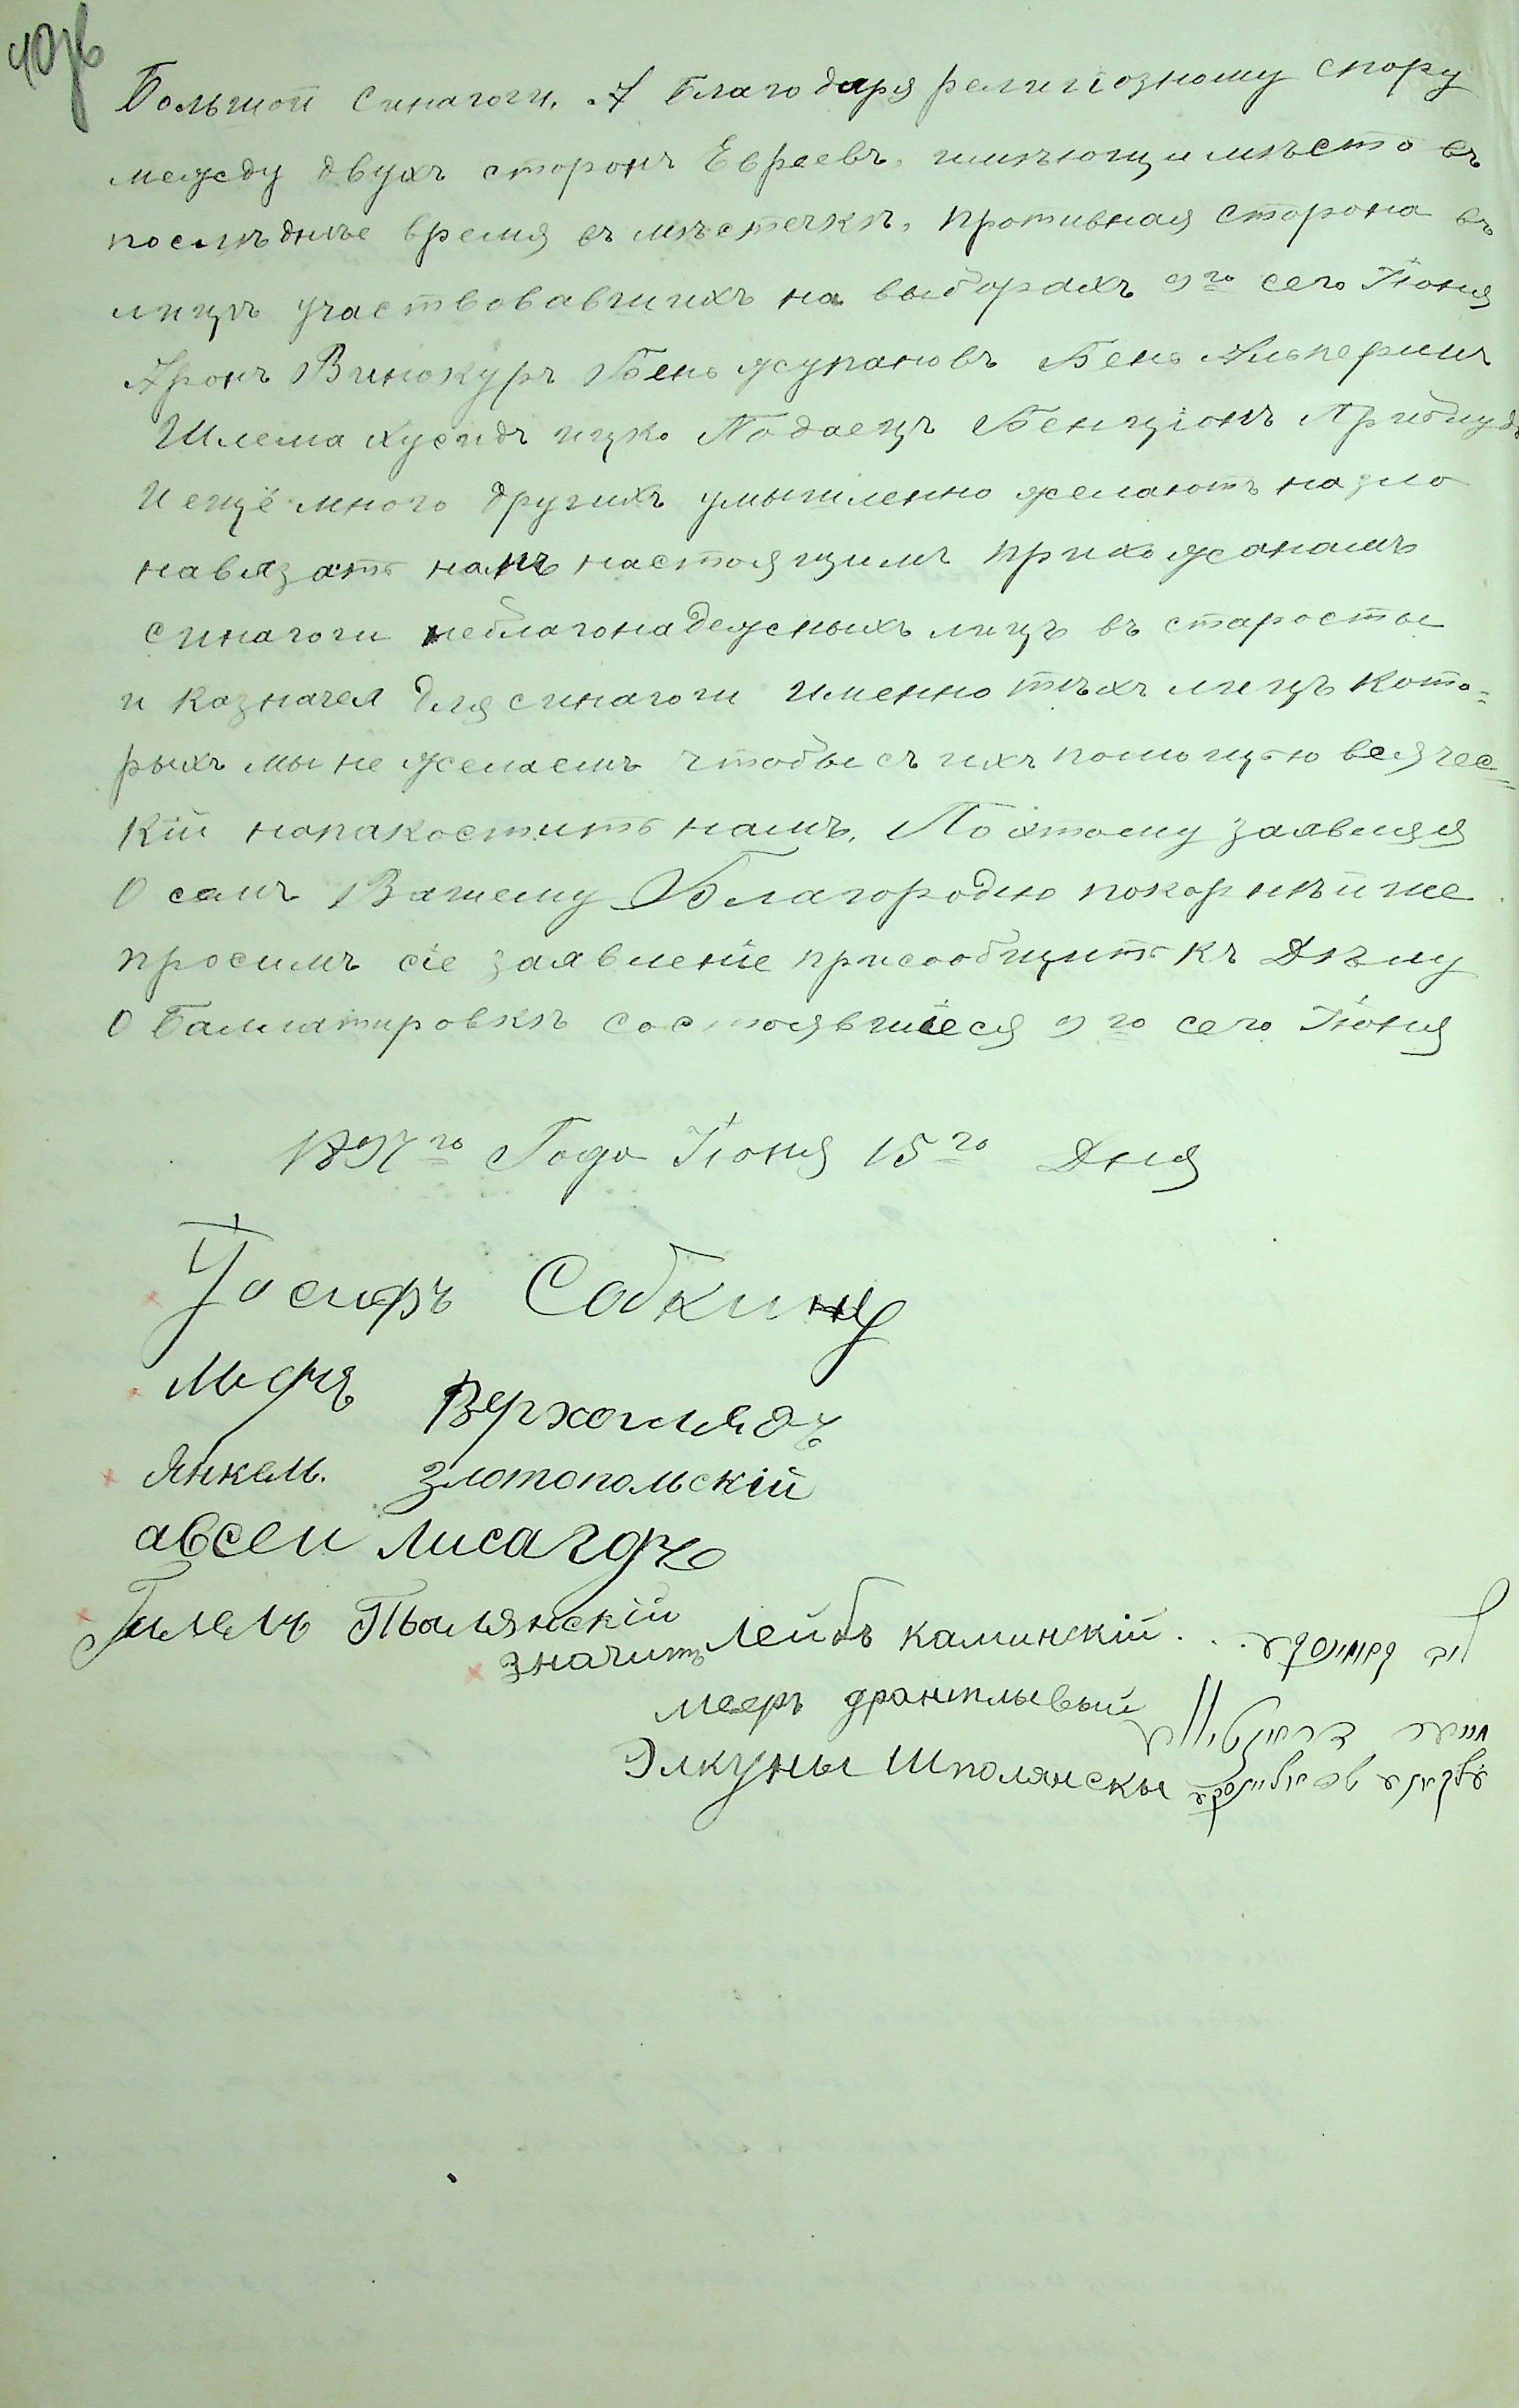 Большой Синагоги. А Благодаря религіозному спору
между двухъ сторонъ Евреевъ, имѣющи мѣсто въ
послѣднѣе время въ мѣстечкѣ, противная сторона въ
лицѣ участвовавшихъ на выборахъ 9го сего Іюня
Аронъ Винокуръ Бень жупановъ Бень Альперинъ
Шлема Хусидъ ицко Подаецъ Бенціонъ
И ещё много другихъ умышленно желаютъ назло
навязать намъ настоящимъ прихожанамъ
синагоги неблагонадежныхъ лицъ въ старосты
и казначея для синагоги именно тѣхъ лицъ кото=
рыхъ мы не желаемъ чтобы съ ихъ помощью всячес=
кій напакостить намъ. Поэтому заявляя
О семъ Вашему Благородію покорнѣйше
просимъ сіе заявленіе присообщить къ Дѣлу
О Баллатировкѣ состоявшіеся 9го сего Іюня
го Года Іюня 15го Дня
Іосифъ Собкину
Верхогляд
Янкель Злотопольскій
авсеи
Гилель Полянскій
значитъ Лейбъ каминскій . . . ליב קאמינסקע
меер дрантлывый מאיר
Элкуны Шполянскы